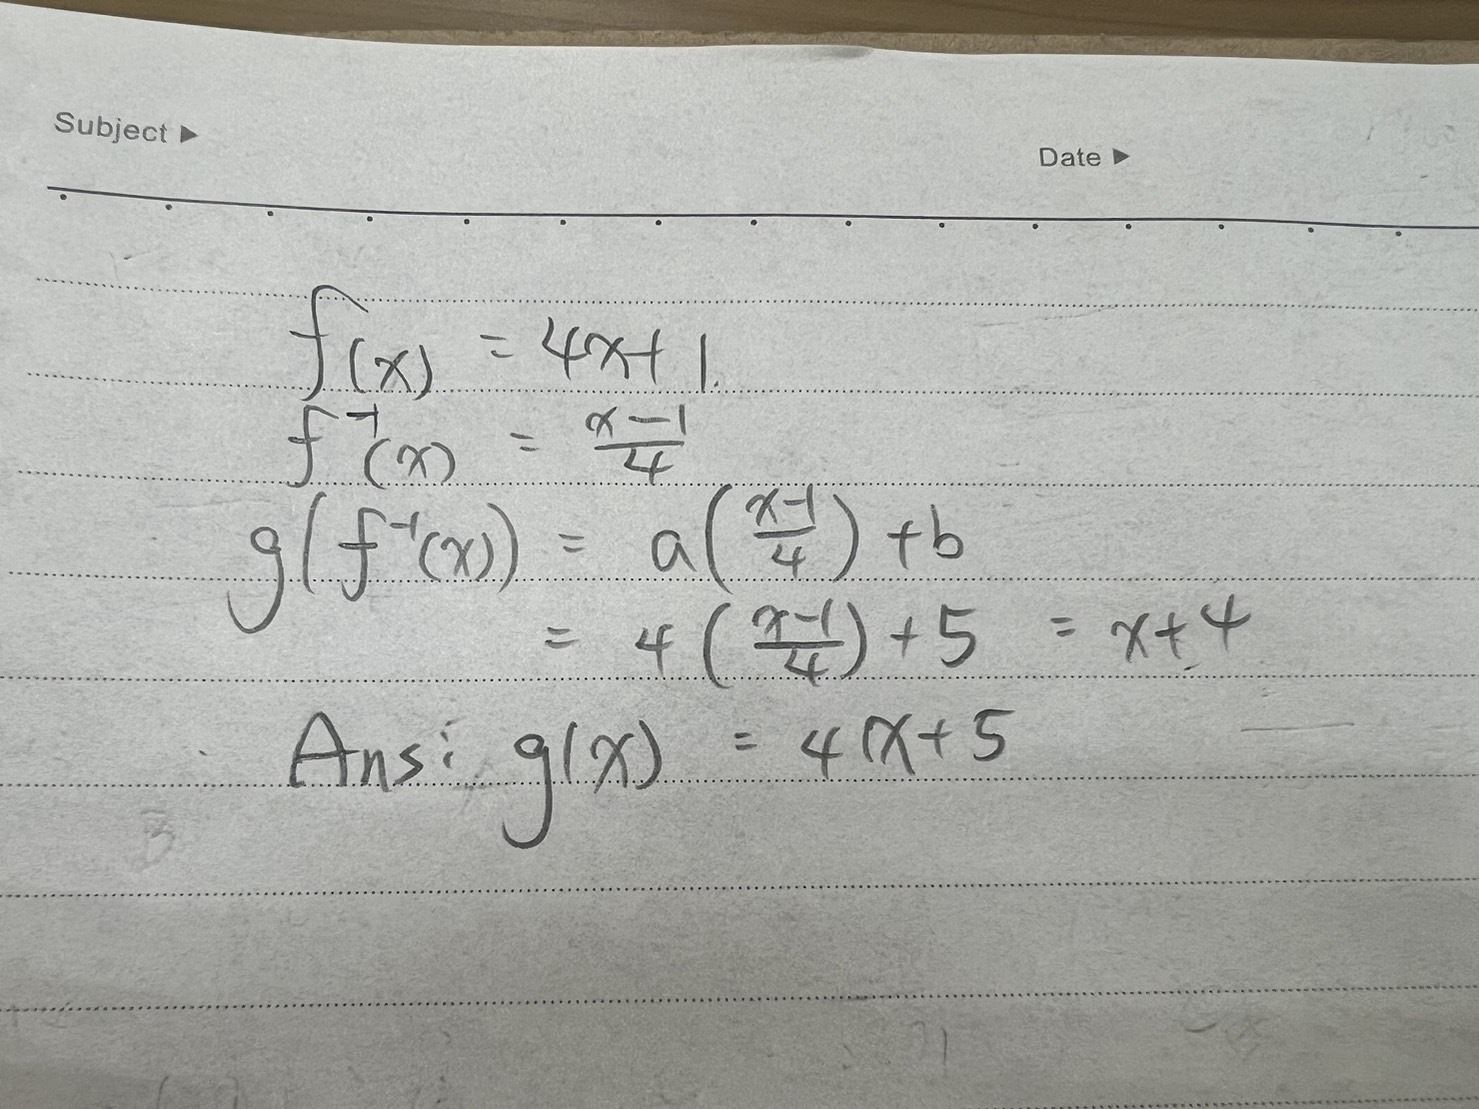 Subject ▶
Date ▶
f(x) = 4x+1.
f⁻¹(x) = (x-1)/4
g(f⁻¹(x)) = a((x-1)/4)+b
= 4((x-1)/4)+5 = x+4
Ans: g(x) = 4x+5